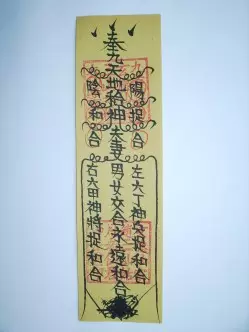 奉九天地給神夫妻男女交合永遠和合
陽捉合
陰和合
左六丁神將捉和合
右六甲神將捉和合